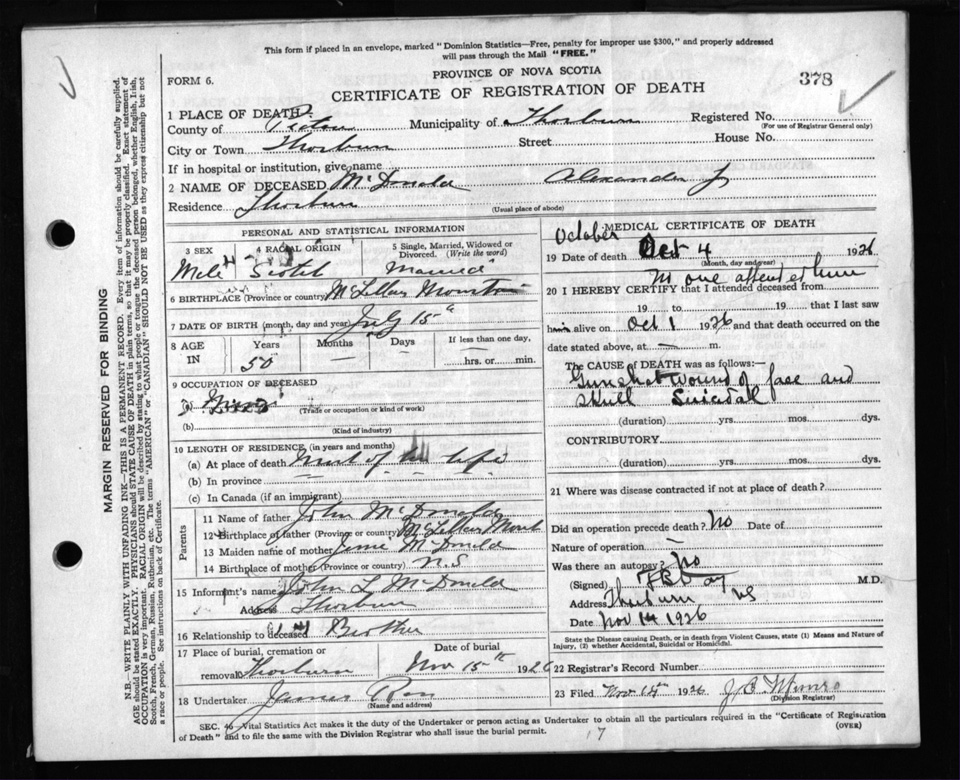 This form if placed in an envelope, marked "Dominion Statistics—Free, penalty for improper use $300," and properly addressed
will pass through the Mail "FREE."
FORM 6.
PROVINCE OF NOVA SCOTIA
CERTIFICATE OF REGISTRATION OF DEATH
378
1 PLACE OF DEATH:
County of Pictou Municipality of Thorburn Registered No.
(For use of Registrar General only)
City or Town Thorburn Street House No.
If in hospital or institution, give name
2 NAME OF DECEASED McDonald Alexander J
Residence Thorburn (Usual place of abode)
PERSONAL AND STATISTICAL INFORMATION
3 SEX 4 RACIAL ORIGIN 5 Single, Married, Widowed or Divorced. (Write the word)
Male Scotch Married
6 BIRTHPLACE (Province or country) McLellan Mount
7 DATE OF BIRTH (month, day and year) July 15
8 AGE IN Years Months Days If less than one day,
50 — — hrs. or min.
9 OCCUPATION OF DECEASED
(a)
(Trade or occupation or kind of work)
(b)
(Kind of industry)
10 LENGTH OF RESIDENCE (in years and months)
(a) At place of death most of his life
(b) In province —
(c) In Canada (if an immigrant)
Parents
11 Name of father John McDonald
12 Birthplace of father (Province or country) McLellan Mount
13 Maiden name of mother McDonald
14 Birthplace of mother (Province or country) N.S
15 Informant's name John L McDonald
Address Thorburn
16 Relationship to deceased Brother
17 Place of burial, cremation or removal Thorburn Date of burial Nov 15th 1926
18 Undertaker James Ross
(Name and address)
MEDICAL CERTIFICATE OF DEATH
October
19 Date of death Oct 4 1926
(Month, day and year)
no one attended him
20 I HEREBY CERTIFY that I attended deceased from
19 to 19 that I last saw
him alive on Oct 1 1926 and that death occurred on the
date stated above, at — m.
The CAUSE OF DEATH was as follows:—
Gunshot wound of face and
skull Suicidal
(duration) yrs. mos. dys.
CONTRIBUTORY
(duration) yrs. mos. dys.
21 Where was disease contracted if not at place of death?
Did an operation precede death? No Date of
Nature of operation —
Was there an autopsy? No
(Signed) M.D.
Address Thorburn NS
Date Nov 14 1926
State the Disease causing Death, or in death from Violent Causes, state (1) Means and Nature of
Injury, (2) whether Accidental, Suicidal or Homicidal.
22 Registrar's Record Number
23 Filed Nov 15th 1926 J B Munro
(Division Registrar)
SEC. Vital Statistics Act makes it the duty of the Undertaker or person acting as Undertaker to obtain all the particulars required in the "Certificate of Registration
of Death" and to file the same with the Division Registrar who shall issue the burial permit.
(OVER)
17
MARGIN RESERVED FOR BINDING
N.B.—WRITE PLAINLY WITH UNFADING INK—THIS IS A PERMANENT RECORD. Every item of information should be carefully supplied.
AGE should be stated EXACTLY. PHYSICIANS should STATE CAUSE OF DEATH in plain terms, so that it may be properly classified. Exact statement of
OCCUPATION is very important. RACIAL ORIGIN will be described by stating to what people or tongue the deceased person belonged, whether English, Irish,
Scotch, French, German, Russian, Ruthenian, etc. The terms "AMERICAN" or "CANADIAN" SHOULD NOT BE USED as they express citizenship but not
a race or people. See instructions on back of Certificate.